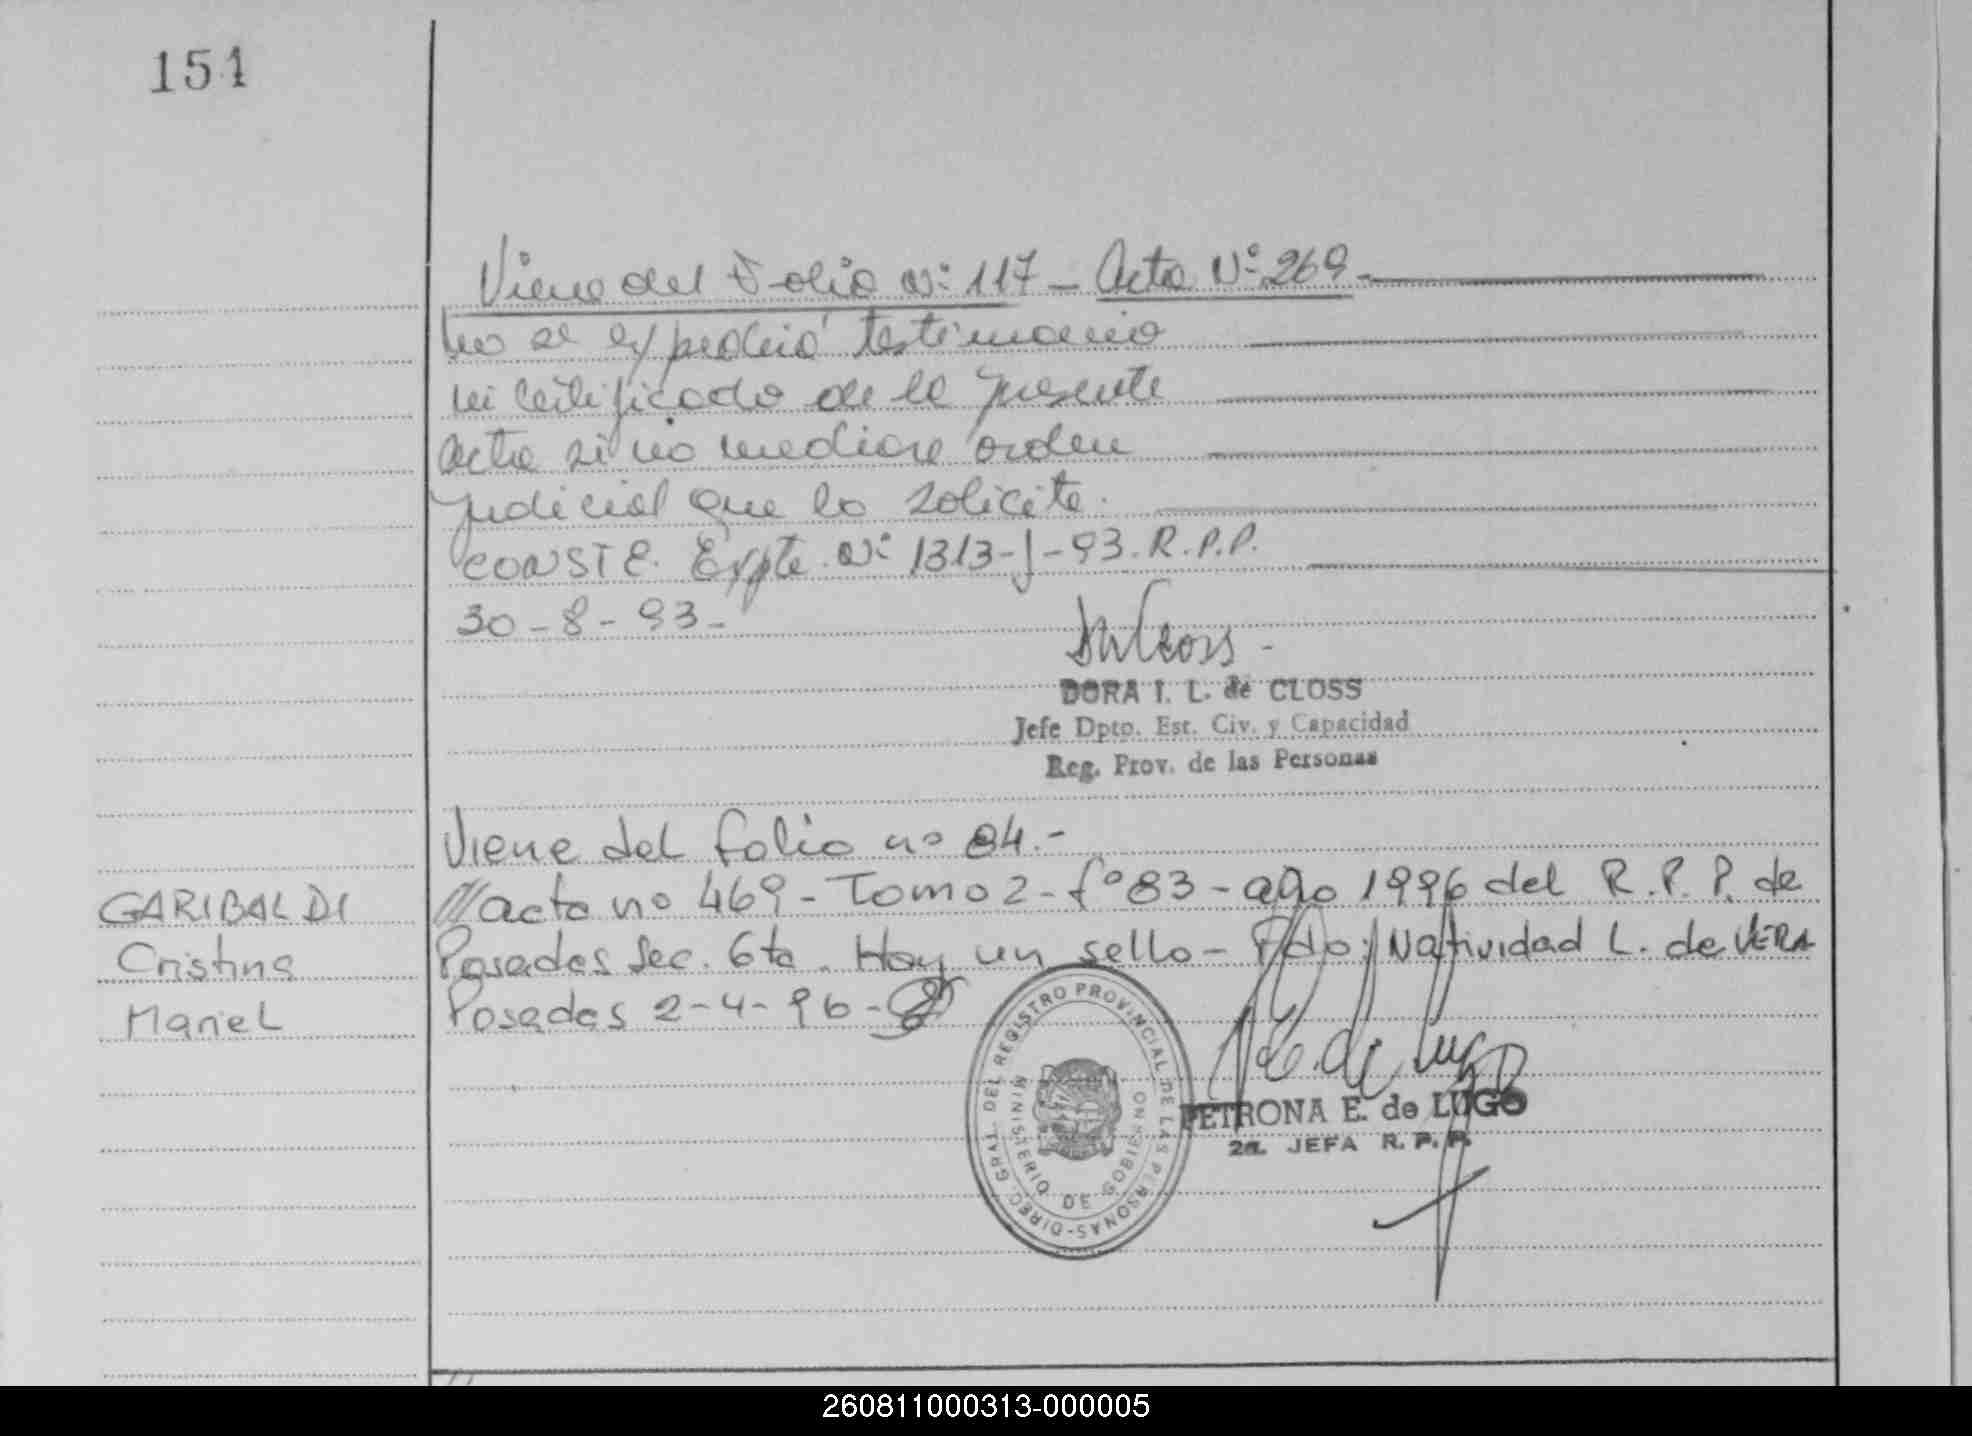 151
Viene del Folio N: 117 - Acta N: 269.-
no se expedirá testimonio
ni certificado de la presente
acta si no mediare orden
judicial que lo solicite.
CONSTE. Expte. N: 1313-J-93. R.P.P.
30-8-93.-
DORA I. L. de CLOSS
Jefe Dpto. Est. Civ. y Capacidad
Reg. Prov. de las Personas
Viene del folio no 84.-
GARIBALDI
Cristina
Mariel
///acta no 469 - Tomo 2 - fº 83 - año 1996 del R.P.P. de
Posadas Sec. 6ta. Hay un sello - Fdo: Natividad L. de VERA
Posadas 2-4-96-
DIREC. GRAL. DEL REGISTRO PROVINCIAL DE LAS PERSONAS-
MINISTERIO DE GOBIERNO
P. E. de Lugo
PETRONA E. de LUGO
2a. JEFA R. P. P.
260811000313-000005